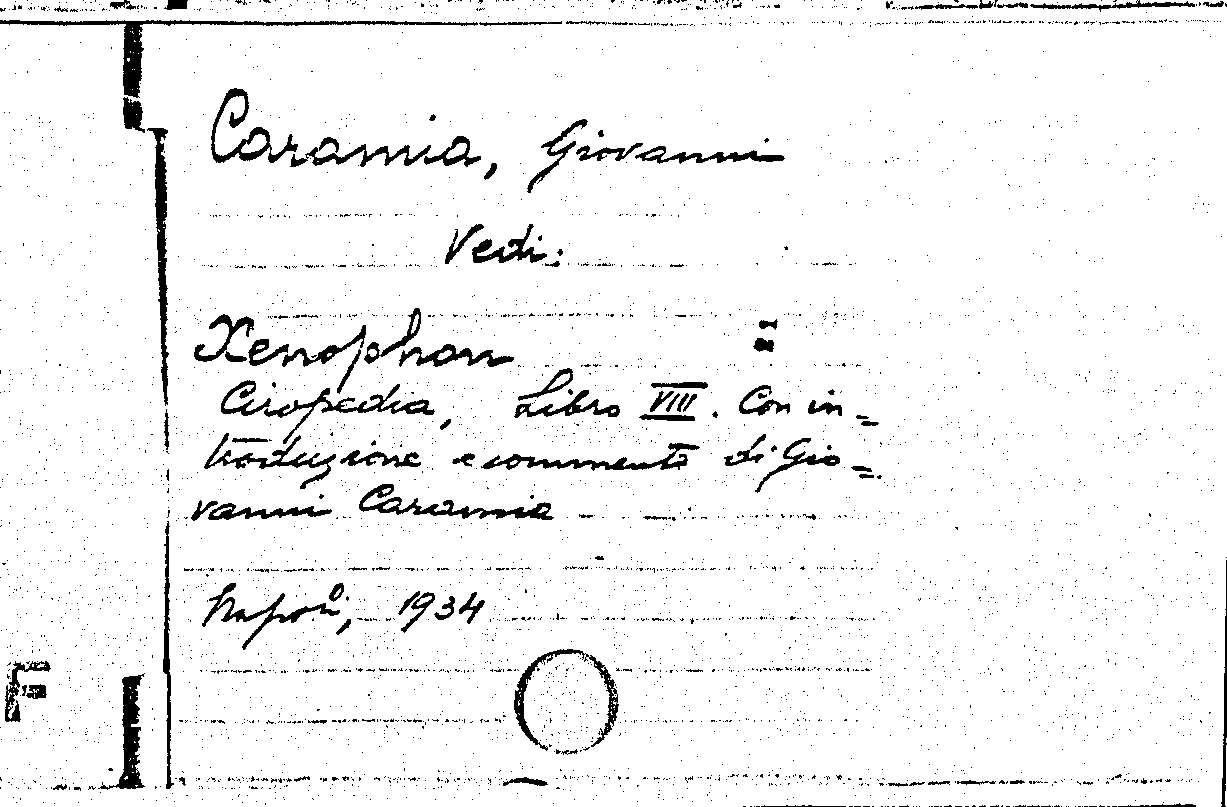 Caramia, Giovanni
Vedi:
Xenophon
Ciropedia, Libro VIII. Con in=
troduzione e commento di Gio=
vanni Caramia
Napoli, 1934
F